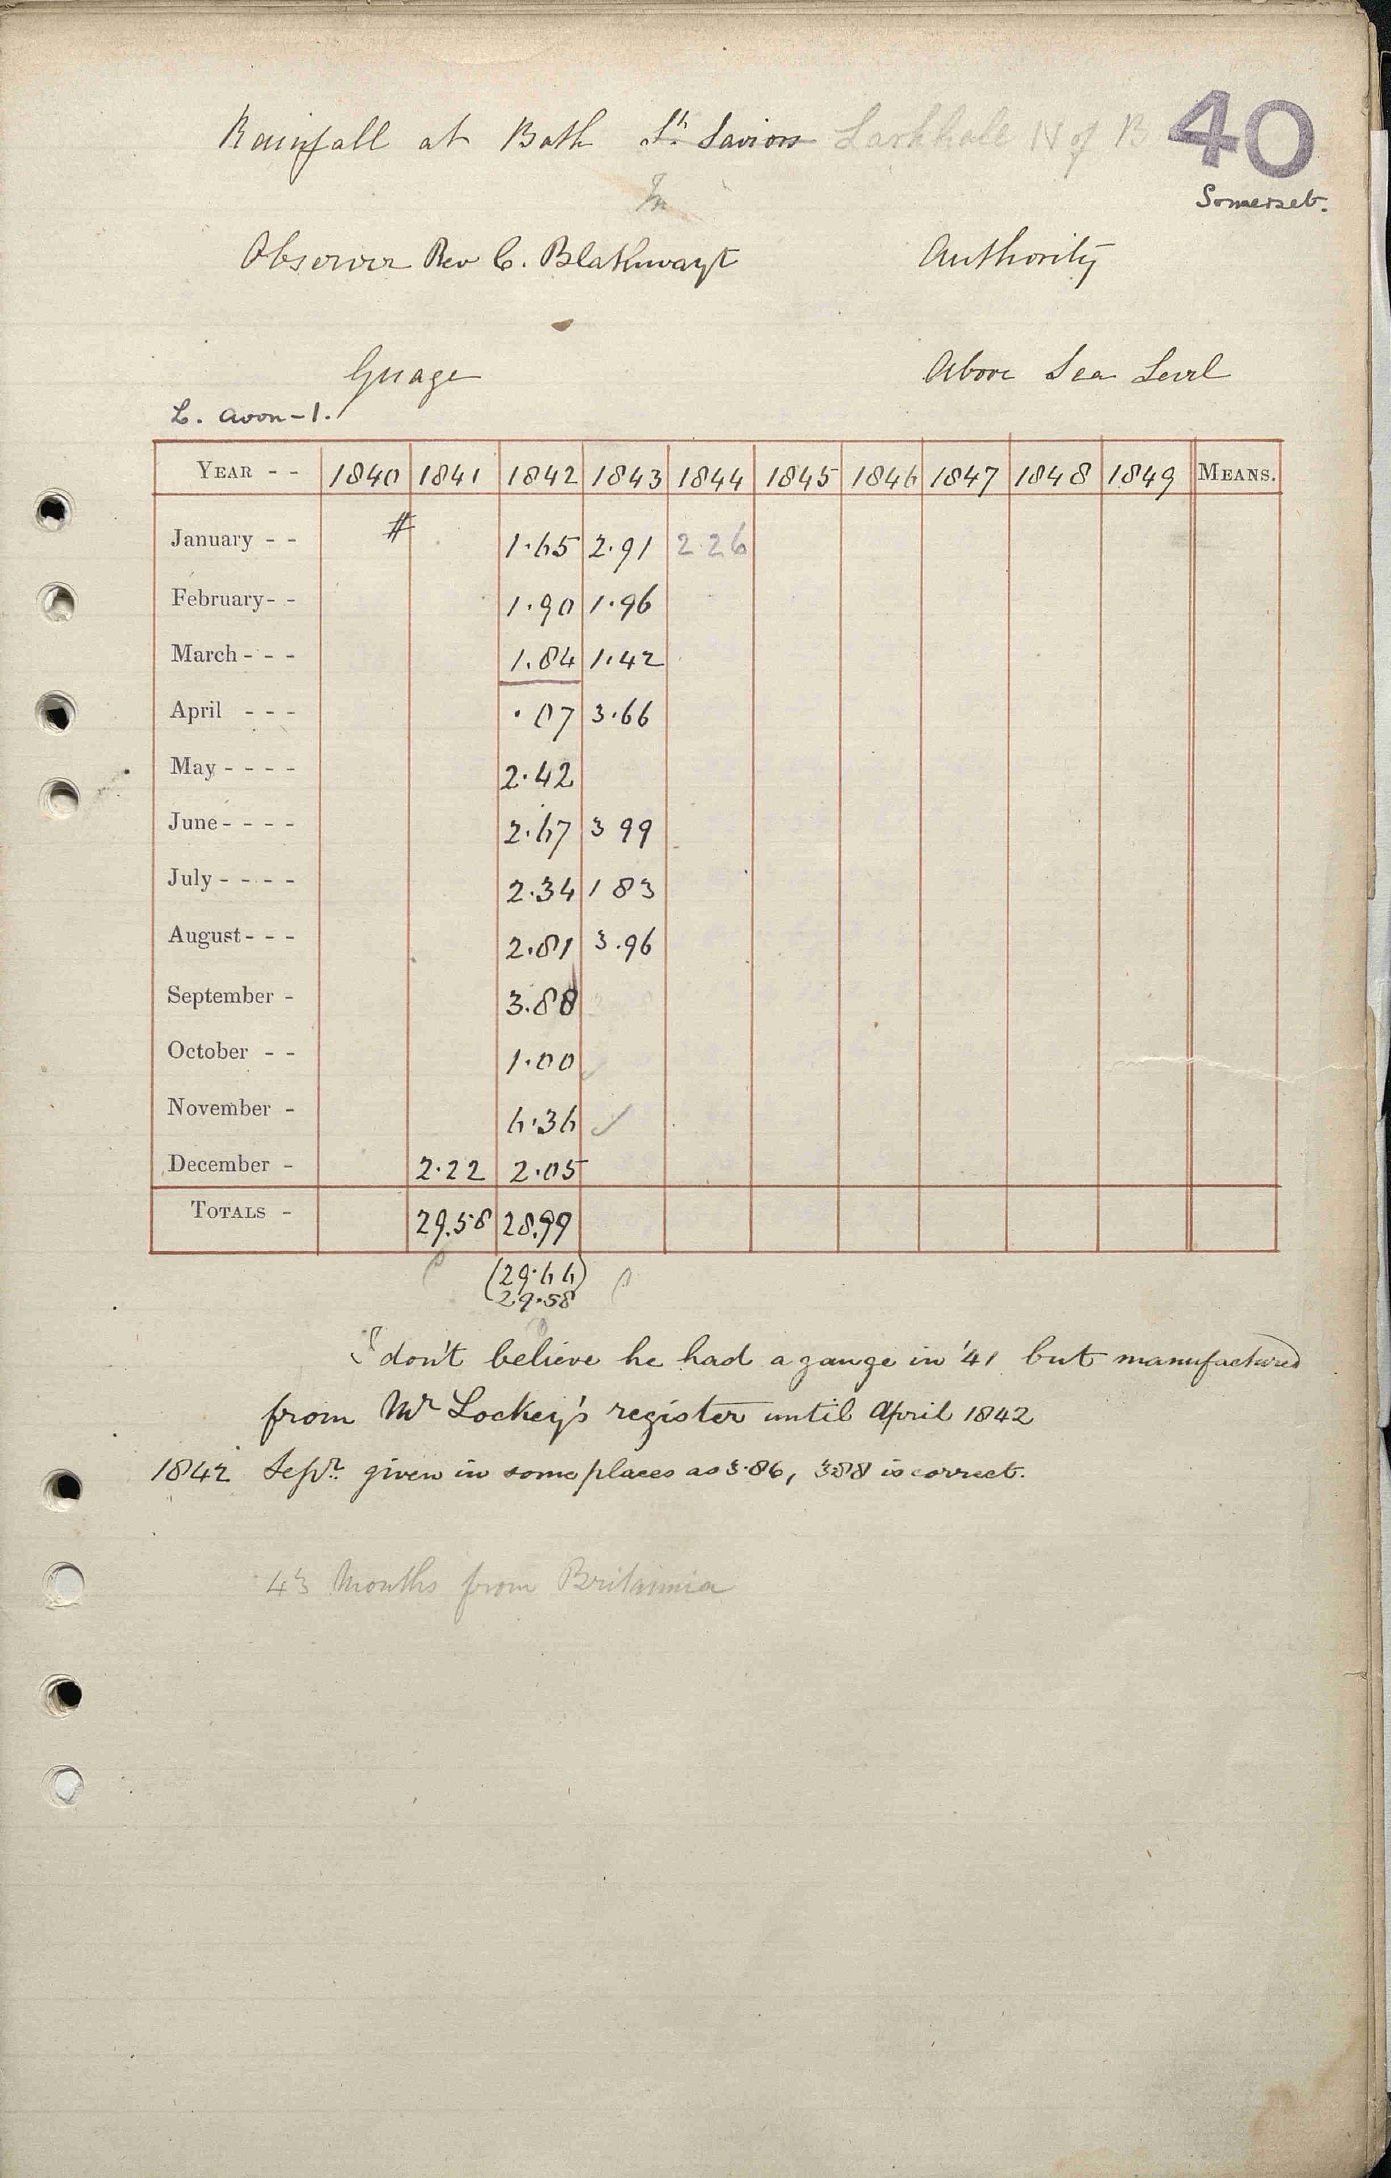 40
Rainfall at Bath St. Saviors Larkhall N of B
Somerset.
Observer Rev C. Blathwayt Authority
Guage Above Sea Level
L. Avon-1.
YEAR - - 1840 1841 1842 1843 1844 1845 1846 1847 1848 1849 MEANS.
January - - # 1.65 2.91 2.26
February - - 1.90 1.96
March - - - 1.84 1.42
April - - - .07 3.66
May - - - - 2.42
June - - - - 2.67 3 99
July - - - - 2.34 1 83
August - - - 2.81 3.96
September - 3.88
October - - 1.00 ✓
November - 6.36 ✓
December - 2.22 2.05
TOTALS - 29.58 28.99
(29.66)
29.58
I don't believe he had a gauge in '41 but manufactured
from Mr Lockey's register until April 1842
1842 Sepr. given in some places as 3.86, 3.88 is correct.
43 Months from Britannia